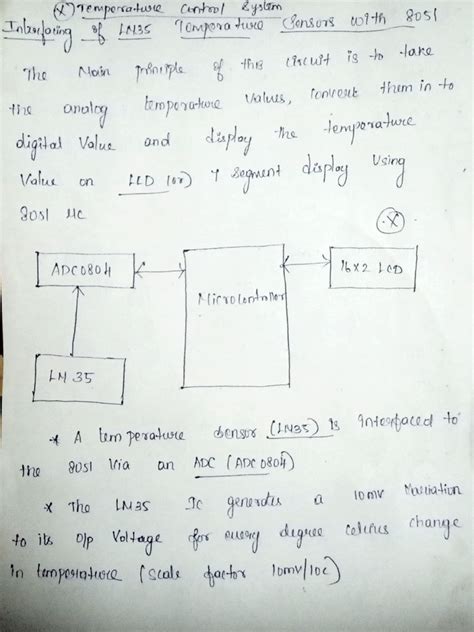 (X) Temperature Control System
Interfacing of LM35 Temperature Sensors with 8051
The Main principle of this circuit is to take
the analog temperature values, convert them in to
digital value and display the temperature
value on LCD (or) 7 segment display Using
8051 μc
X
ADC0804
Microcontroller
16x2 LCD
LM 35
* A temperature sensor (LM35) is interfaced to
the 8051 via an ADC (ADC0804)
* The LM35 Ic generates a 10mv
to its O/p Voltage for every degree celcius change
in temperature (scale factor 10mv/10c)